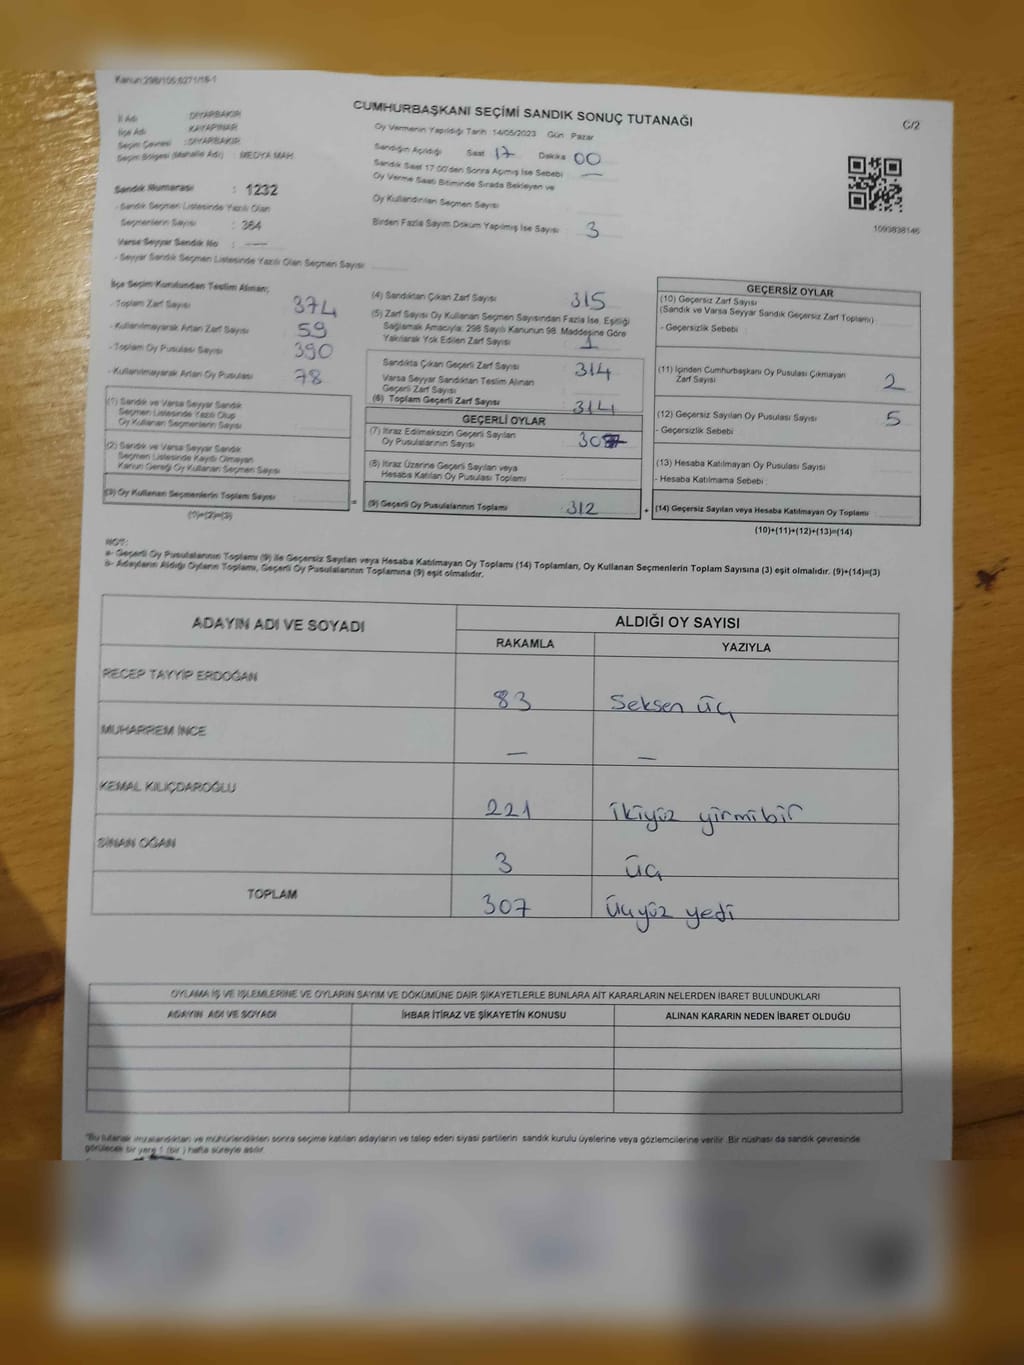 Kanun:298/105;6271/18-1
CUMHURBAŞKANI SEÇİMİ SANDIK SONUÇ TUTANAĞI
C/2
İl Adı : DİYARBAKIR
İlçe Adı : KAYAPINAR
Seçim Çevresi : DİYARBAKIR
Seçim Bölgesi (Mahalle Adı) : MEDYA MAH.
Sandık Numarası : 1232
- Sandık Seçmen Listesinde Yazılı Olan
Seçmenlerin Sayısı : 364
Varsa Seyyar Sandık No : —
- Seyyar Sandık Seçmen Listesinde Yazılı Olan Seçmen Sayısı
Oy Vermenin Yapıldığı Tarih: 14/05/2023 Gün Pazar
Sandığın Açıldığı Saat 17 Dakika 00
Sandık Saat 17:00'den Sonra Açılmış İse Sebebi —
Oy Verme Saati Bitiminde Sırada Bekleyen ve
Oy Kullandırılan Seçmen Sayısı
Birden Fazla Sayım Döküm Yapılmış İse Sayısı 3
1093838146
İlçe Seçim Kurulundan Teslim Alınan;
- Toplam Zarf Sayısı 374
- Kullanılmayarak Artan Zarf Sayısı 59
- Toplam Oy Pusulası Sayısı 390
- Kullanılmayarak Artan Oy Pusulası 78
(1) Sandık ve Varsa Seyyar Sandık
Seçmen Listesinde Yazılı Olup
Oy Kullanan Seçmenlerin Sayısı
(2) Sandık ve Varsa Seyyar Sandık
Seçmen Listesinde Kayıtlı Olmayan
Kanun Gereği Oy Kullanan Seçmen Sayısı
(3) Oy Kullanan Seçmenlerin Toplam Sayısı
(1)+(2)=(3)
(4) Sandıktan Çıkan Zarf Sayısı 315
(5) Zarf Sayısı Oy Kullanan Seçmen Sayısından Fazla İse, Eşitliği
Sağlamak Amacıyla; 298 Sayılı Kanunun 98. Maddesine Göre
Yakılarak Yok Edilen Zarf Sayısı 1
Sandıkta Çıkan Geçerli Zarf Sayısı 314
Varsa Seyyar Sandıktan Teslim Alınan
Geçerli Zarf Sayısı
(6) Toplam Geçerli Zarf Sayısı 314
GEÇERLİ OYLAR
(7) İtiraz Edilmeksizin Geçerli Sayılan
Oy Pusulalarının Sayısı 307
(8) İtiraz Üzerine Geçerli Sayılan veya
Hesaba Katılan Oy Pusulası Toplamı
= (9) Geçerli Oy Pusulalarının Toplamı 312
GEÇERSİZ OYLAR
(10) Geçersiz Zarf Sayısı
(Sandık ve Varsa Seyyar Sandık Geçersiz Zarf Toplamı)
- Geçersizlik Sebebi
(11) İçinden Cumhurbaşkanı Oy Pusulası Çıkmayan
Zarf Sayısı 2
(12) Geçersiz Sayılan Oy Pusulası Sayısı 5
- Geçersizlik Sebebi
(13) Hesaba Katılmayan Oy Pusulası Sayısı
- Hesaba Katılmama Sebebi
+ (14) Geçersiz Sayılan veya Hesaba Katılmayan Oy Toplamı
(10)+(11)+(12)+(13)=(14)
NOT:
a- Geçerli Oy Pusulalarının Toplamı (9) ile Geçersiz Sayılan veya Hesaba Katılmayan Oy Toplamı (14) Toplamları, Oy Kullanan Seçmenlerin Toplam Sayısına (3) eşit olmalıdır. (9)+(14)=(3)
b- Adayların Aldığı Oyların Toplamı, Geçerli Oy Pusulalarının Toplamına (9) eşit olmalıdır.
ADAYIN ADI VE SOYADI
ALDIĞI OY SAYISI
RAKAMLA YAZIYLA
RECEP TAYYİP ERDOĞAN 83 Seksen üç
MUHARREM İNCE — —
KEMAL KILIÇDAROĞLU 221 ikiyüz yirmibir
SİNAN OĞAN 3 üç
TOPLAM 307 üçyüz yedi
OYLAMA İŞ VE İŞLEMLERİNE VE OYLARIN SAYIM VE DÖKÜMÜNE DAİR ŞİKAYETLERLE BUNLARA AİT KARARLARIN NELERDEN İBARET BULUNDUKLARI
ADAYIN ADI VE SOYADI İHBAR İTİRAZ VE ŞİKAYETİN KONUSU ALINAN KARARIN NEDEN İBARET OLDUĞU
*Bu tutanak imzalandıktan ve mühürlendikten sonra seçime katılan adayların ve talep eden siyasi partilerin sandık kurulu üyelerine veya gözlemcilerine verilir. Bir nüshası da sandık çevresinde
görülecek bir yere 1 (bir ) hafta süreyle asılır.